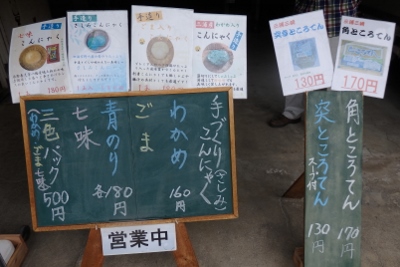 七味
こんにゃく
手造り
こんにゃく
手造り
こんにゃく
突きところてん
130円
角ところてん
170円
手づくり(さしみ)
こんにゃく
わかめ 160円
ごま
青のり 各180円
七味
三色パック 500円
わかめ ごま 七味
角ところてん 170円
突ところてん 130円
スープ付
営業中